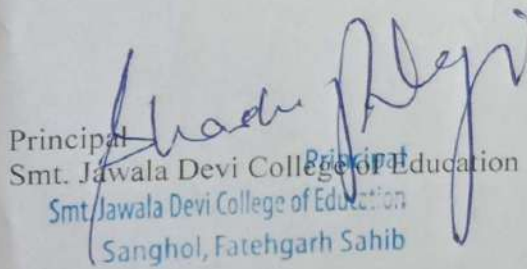 Principal
Smt. Jawala Devi College of Education
Principal
Smt. Jawala Devi College of Education
Sanghol, Fatehgarh Sahib